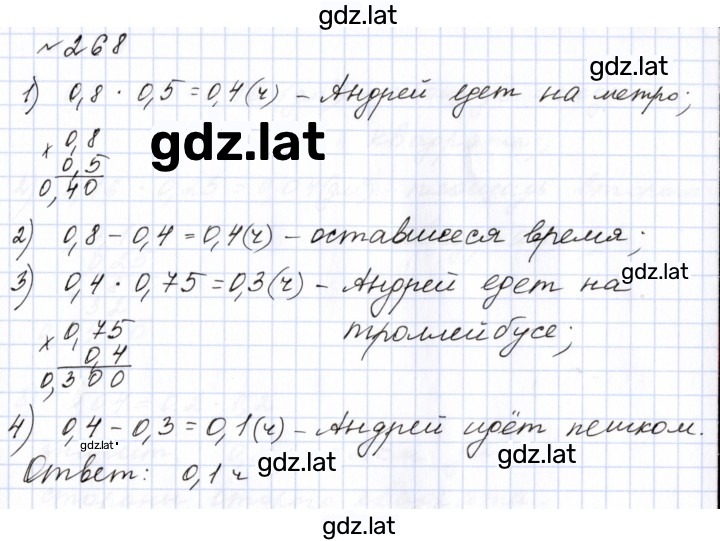 gdz.lat
№268
gdz.lat
1) 0,8 · 0,5 = 0,4(ч) – Андрей едет на метро;
gdz.lat
× 0,8
0,5
0,40
2) 0,8 – 0,4 = 0,4(ч) – оставшееся время;
gdz.lat
3) 0,4 · 0,75 = 0,3(ч) – Андрей едет на
троллейбусе;
× 0,75
0,4
0,300
4) 0,4 – 0,3 = 0,1(ч) – Андрей идёт пешком.
gdz.lat
gdz.lat
gdz.lat
Ответ: 0,1 ч
gdz.lat